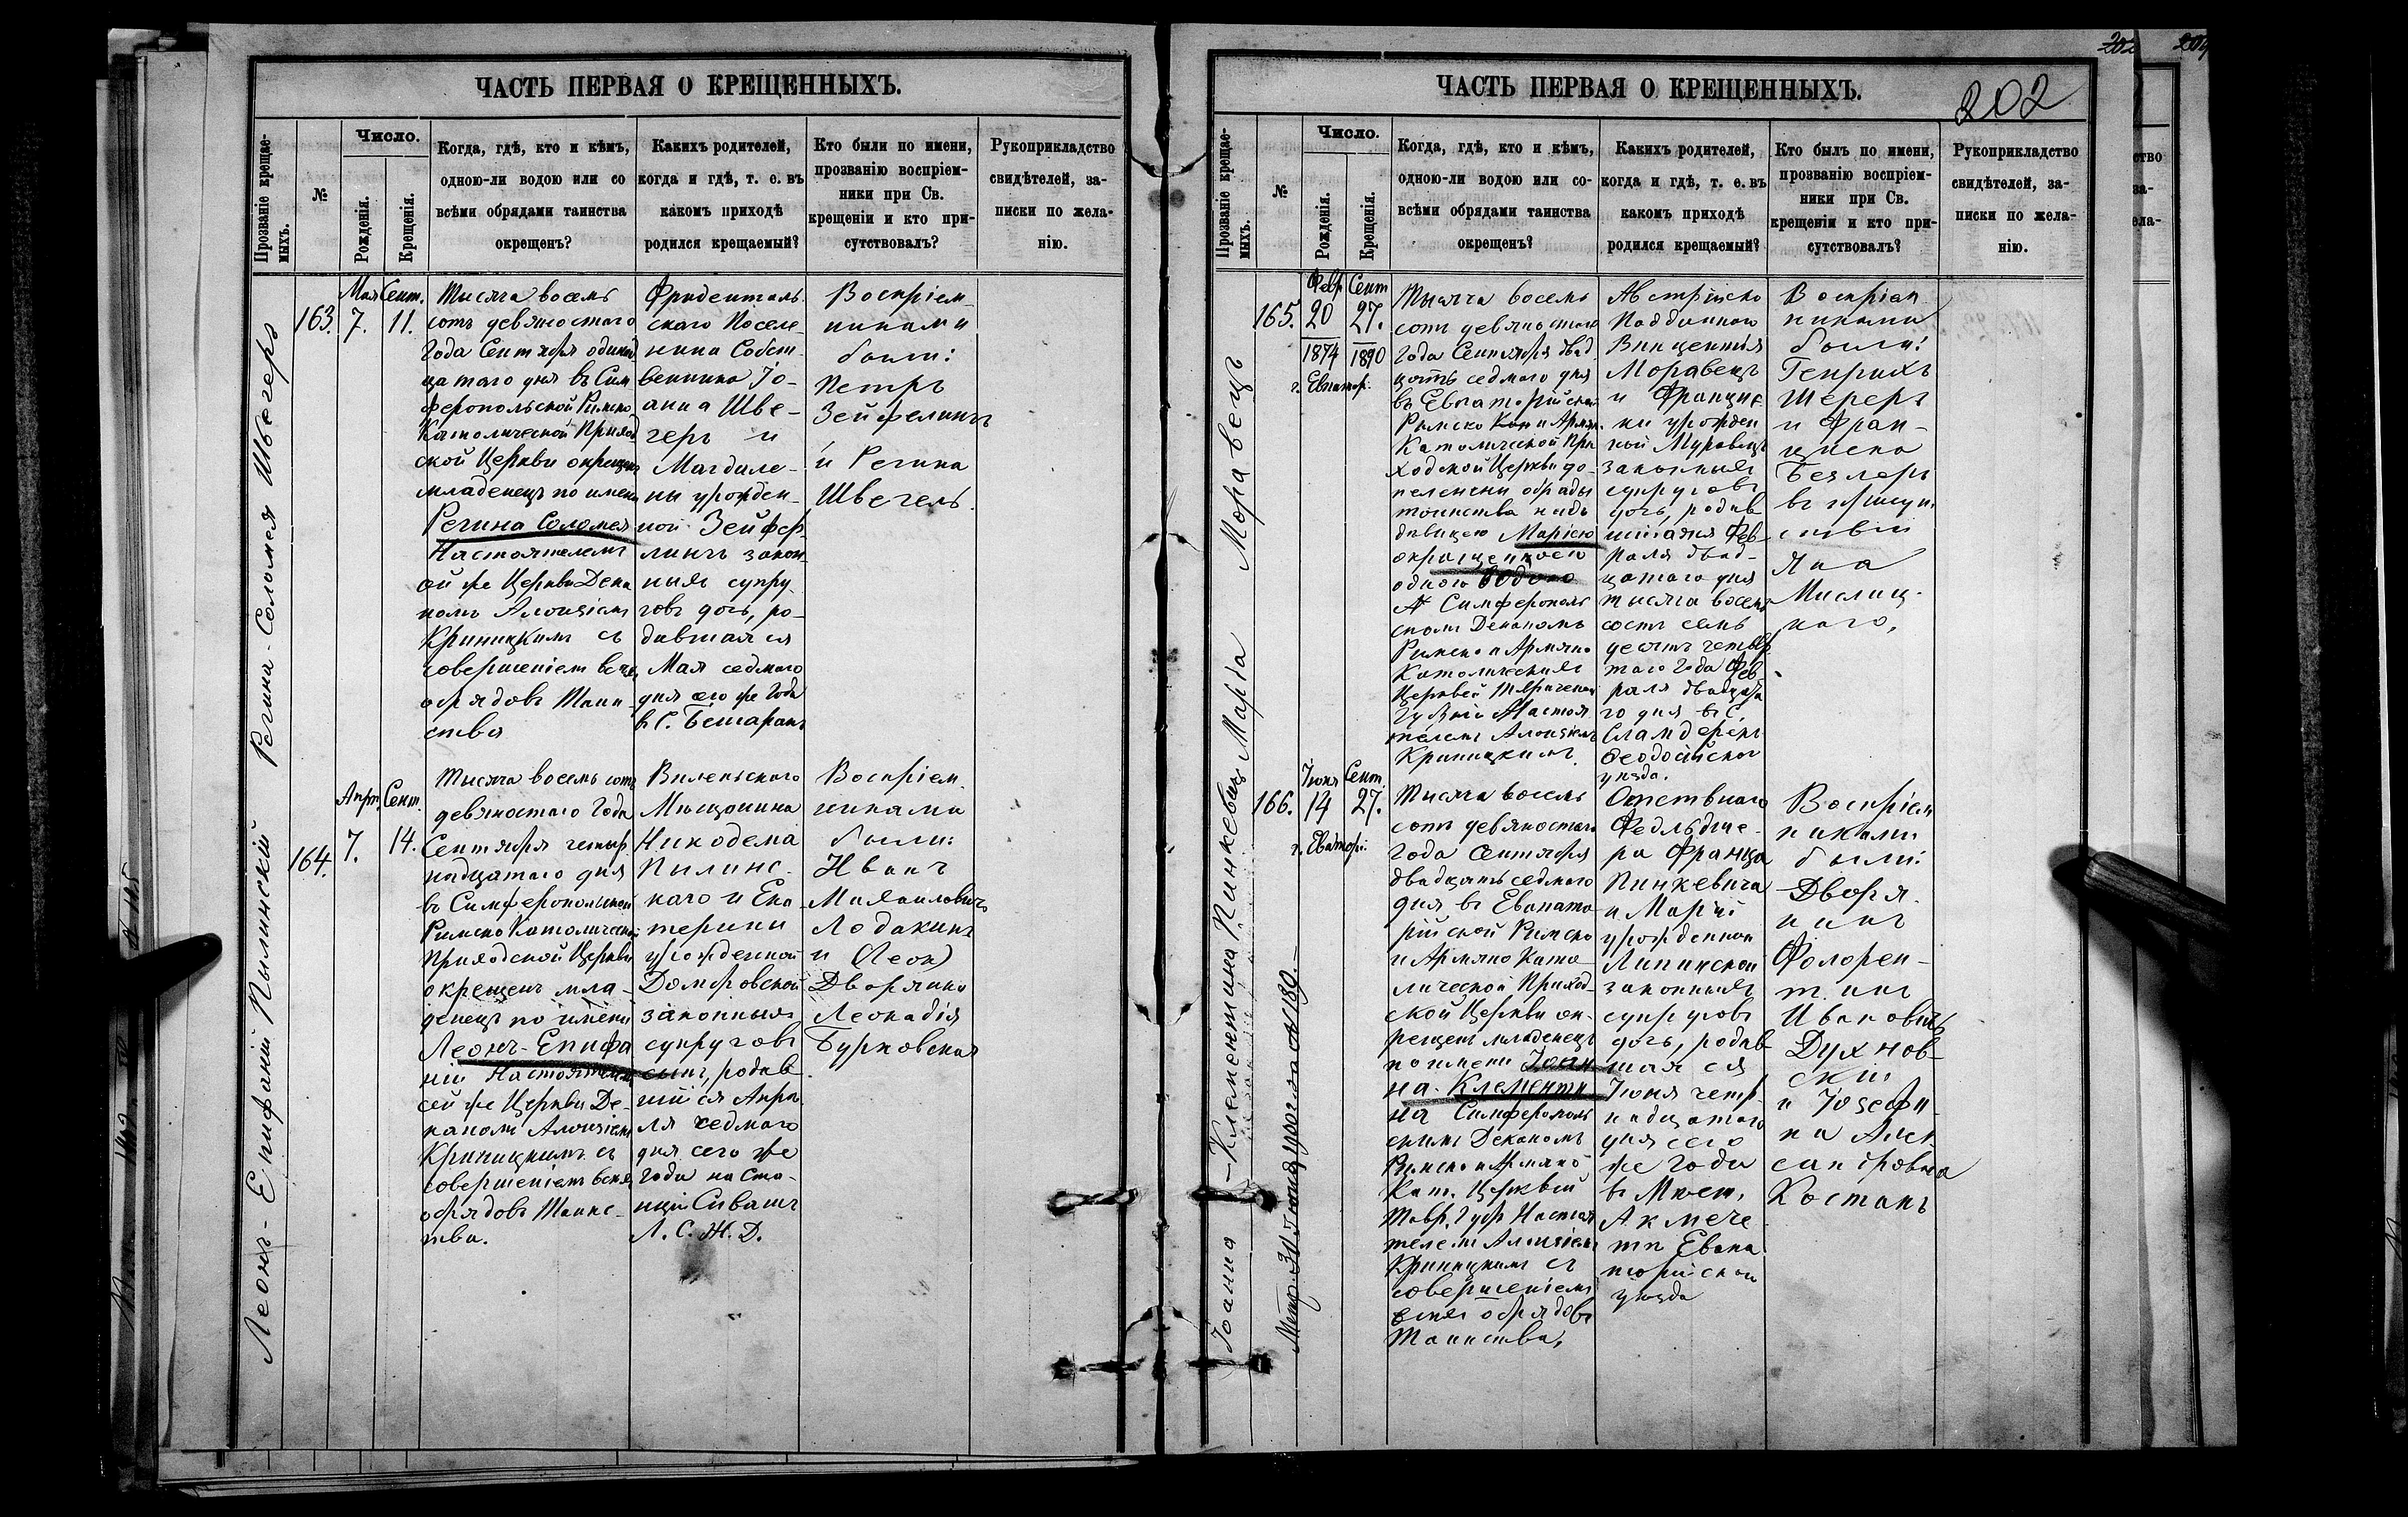 ЧАСТЬ ПЕРВАЯ О КРЕЩЕННЫХЪ.
Прозваніе крещае-
мыхъ.
№
Число.
Рожденія.
Крещенія.
Когда, гдѣ, кто и кѣмъ,
одною-ли водою или со
всѣми обрядами таинства
окрещенъ?
Какихъ родителей,
когда и гдѣ, т. е. въ
какомъ приходѣ
родился крещаемый?
Кто были по имени,
прозванію воспріем-
ники при Св.
крещеніи и кто при-
сутствовалъ?
Рукоприкладство
свидѣтелей, за-
писки по жела-
нію.
Регина-Соломея Швегеръ
163.
Мая
7.
Сент.
11.
Тысяча восемь
сотъ девяностаго
года Сентября одинад
цатаго дня въ Сим
феропольской Римско
Католической Приход
ской Церкви окрещенъ
младенецъ по имени
Регина Соломея
Настоятелемъ
ой же Церкви Дека
номъ Алоизіемъ
Криницкимъ съ
совершеніем всѣхъ
обрядовъ Таин
ства
Фриденталь
скаго Поселе-
нина Собст-
венника Іо-
анна Шве-
геръ и
Магдале-
ны урожден-
ной Зейфер-
лингъ закон
ныхъ супру
говъ дочь, ро-
дившаяся
Мая седмаго
дня сего же года
в С. Бешаранъ
Воспріем
никами
были:
Петръ
Зейферлингъ
и Регина
Швегель.
Леонъ-Епифаній Пылинскій
164.
Апр.
7.
Сент.
14.
Тысяча восемь сотъ
девяностаго года
Сентября четыр
надцатаго дня
въ Симферопольской
Римско Католической
Приходской Церкви
окрещенъ мла-
денецъ по имени
Леонъ-Епифа
ній Настоятелемъ
сей же Церкви Де-
каномъ Алоизіемъ
Криницкимъ съ
совершеніемъ всѣхъ
обрядовъ Таинс-
тва.
Виленскаго
Мѣщанина
Никодема
Пылинс-
каго и Ека-
терины
урожденной
Домбровской
законныхъ
супруговъ
сынъ, родив-
шійся Апрѣ
ля седмаго
дня сего же
года на Ста-
нціи Сивашъ
Л. С. Ж. Д.
Воспріем
никами
были:
Иванъ
Михаиловичъ
Лодакинъ
и (Леок)
Дворянка
Леокадія
Бурковская
ЧАСТЬ ПЕРВАЯ О КРЕЩЕННЫХЪ.
202
202
204
Прозваніе крещае-
мыхъ.
№
Число.
Рожденія.
Крещенія.
Когда, гдѣ, кто и кѣмъ,
одною-ли водою или со-
всѣми обрядами таинства
окрещенъ?
Какихъ родителей,
когда и гдѣ, т. е. въ
какомъ приходѣ
родился крещаемый?
Кто былъ по имени,
прозванію воспріем-
ники при Св.
крещеніи и кто при-
сутствовалъ?
Рукоприкладство
свидѣтелей, за-
писки по жела-
нію.
Марія Моравецъ
165.
Февр
20
1874
Сент
27.
1890
г. Евпатор.
Тысяча восемь
сотъ девяностаго
года Сентября двад
цать седмаго дня
въ Евпаторійской
Римско Кат и Армян.
Католической При
ходской Церкви до-
полнены обряды
таинства надъ
дѣвицею Маріею
окрещенною
одною водою
Симферополь
скимъ Деканомъ
Римско и Армяно
Католическихъ
Церквей Таврической
Губерніи Настоя
телемъ Алоизіемъ
Криницкимъ.
Австрійско
Подданнаго
Винцентія
Моравецъ
и Францис
ки урожден
ной Муравецъ
законныхъ
супруговъ
дочь, родив
шаяся Фев
раля двад-
цатаго дня
тысяча восемь
сотъ семь
десятъ четвер
таго года Фев
раля двадцата
го дня въ С.
Сландеренъ
Ѳеодосійскаго
уѣзда.
Воспріем
никами
были:
Генрихъ
Шереръ
и Фран-
циска
Бецлеръ
въ присут
ствіи
Яна
Мислиц-
каго,
Іоанна-Клементина Пинкевичъ
Метр. 30 Іюня 1901 года за № 180.
166.
Іюня
14
Сент
27.
г. Евпатор.
Тысяча восемь
сотъ девяностаго
года Сентября
двадцать седмаго
дня въ Евпато
рійской Римско
и Армяно Като
лической Приход-
ской Церкви ок-
рещенъ младенецъ
по имени Іоан
на-Клементи
на Симферополь
скимъ Деканомъ
Римско и Армяно
Кат. Церквей
Тавр. Губ. Настоя
телемъ Алоизіемъ
Криницкимъ съ
совершеніемъ
всѣхъ обрядовъ
Таинства.
Фельдше-
ра Франца
Пинкевича
и Маріи
урожденной
Липинской
законныхъ
супруговъ
дочь, родив
шая ся
Іюня четыр-
надцатаго
дня сего
же года
въ Мѣст.
Акмече
ти Евпа
торійскаго
уѣзда
Воспріем
никами
были:
Дворя-
нинъ
Флорен-
тинъ
Ивановичъ
Духнов-
скій
и Іозефи-
на Алек
сандровна
Костанъ